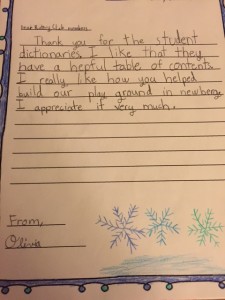 Dear Rotary Club members,
Thank you for the student
dictionaries. I like that they
have a hepful table of contents.
I really like how you helped
build our play ground in newberg.
I appreciate it very much.
From,
Olivia